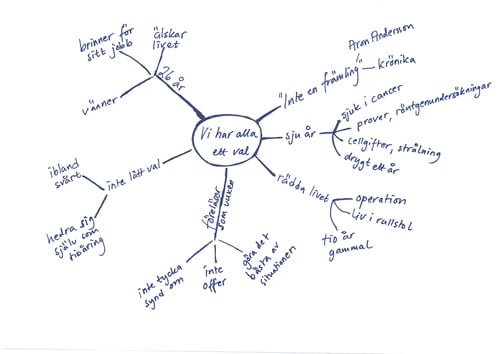 Vi har alla
ett val
Aron Andersson
"Inte en främling"
krönika
sju år
sjuk i cancer
prover, röntgenundersökningar
cellgifter, strålning
drygt ett år
rädda livet
operation
liv i rullstol
tio år
gammal
föreläser
som vuxen
göra det
bästa av
situationen
inte
offer
inte tycka
synd om
inte lätt val
ibland
svårt
hedra sig
själv som
tioåring
26 år
vänner
brinner för
sitt jobb
älskar
livet